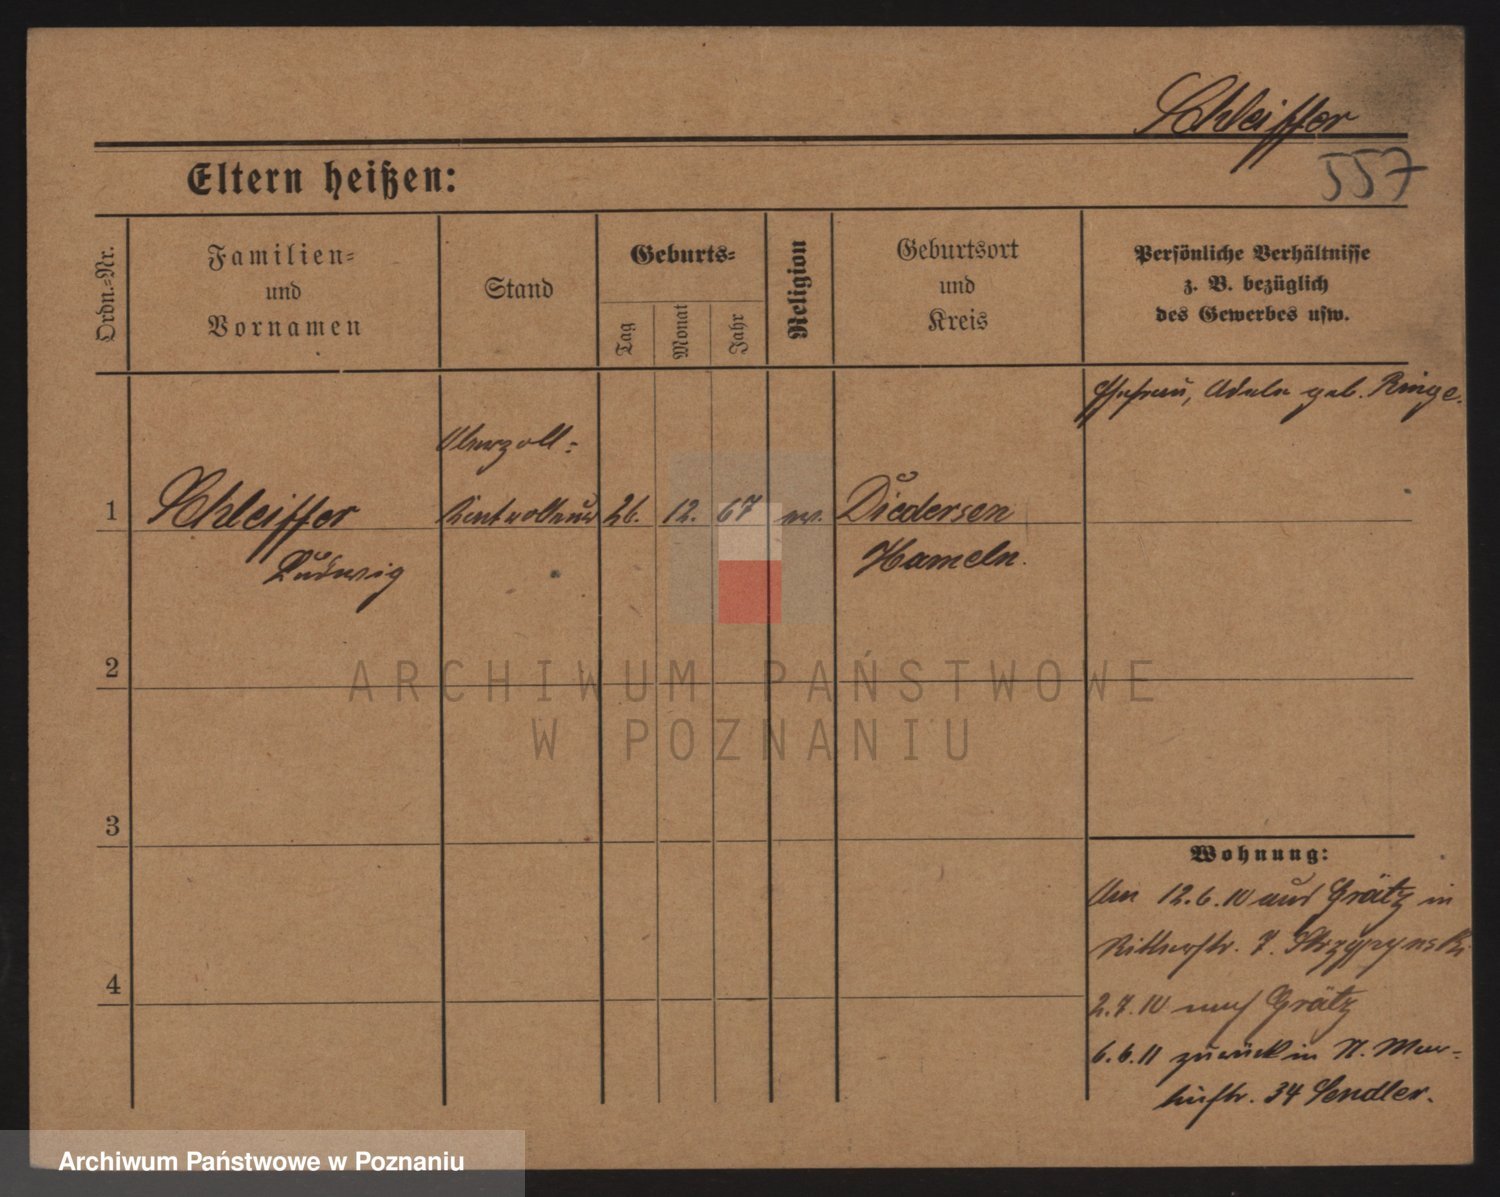 Schleiffer
557
Eltern heißen:
Ordn.-Nr.
Familien-
und
Vornamen
Stand
Geburts-
Tag
Monat
Jahr
Religion
Geburtsort
und
Kreis
Persönliche Verhältnisse
z. B. bezüglich
des Gewerbes usw.
Ehefrau, Adele geb. Ringe.
Oberzoll-
1 Schleiffer Kontrolleur 26. 12. 67 ev. Diedersen
Ludwig
Hameln.
2
3
4
Wohnung:
Am 12.6.10 aus Grätz in
Ritterstr. 7.
2.7.10 nach Grätz
6.6.11 zurück in N. Mar-
tinstr. 34 Sendler.
ARCHIWUM PAŃSTWOWE
W POZNANIU
Archiwum Państwowe w Poznaniu